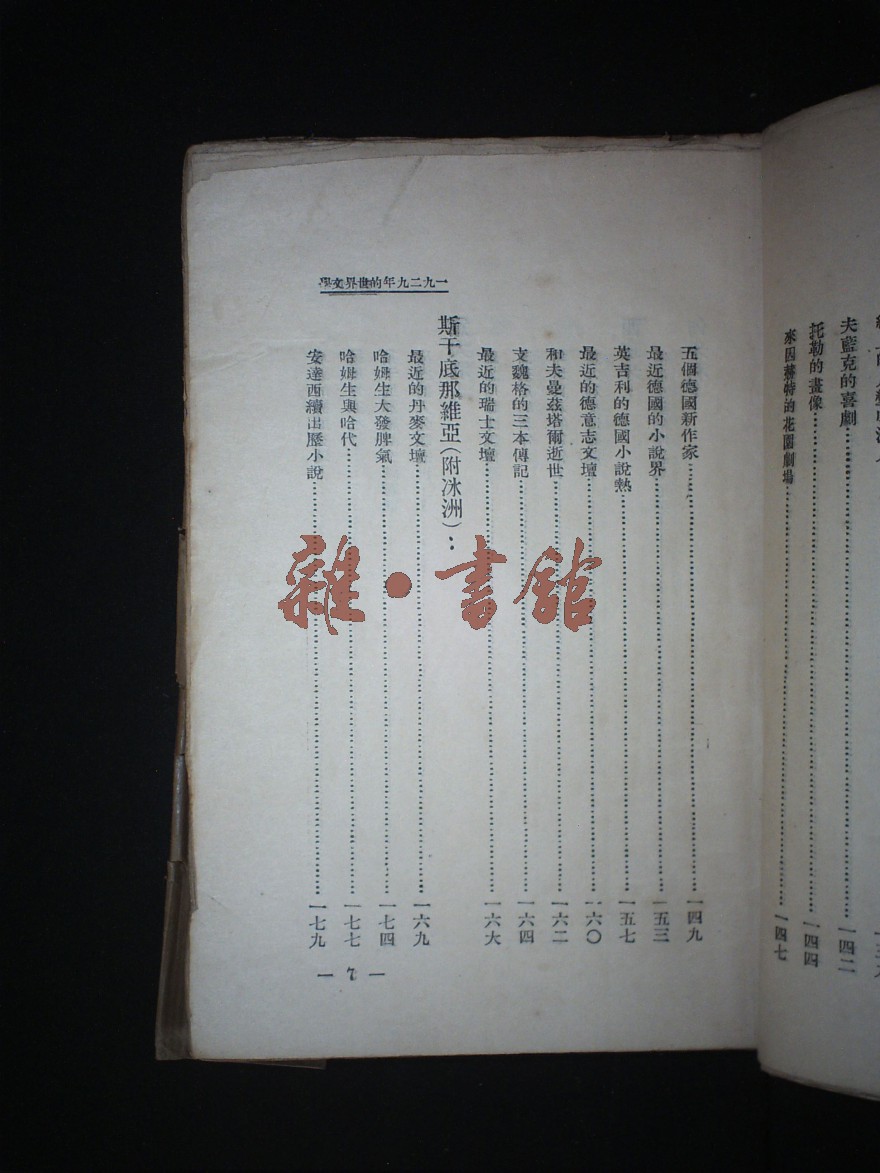 夫藍克的喜劇……一四二
托勒的畫像……一四四
來因赫特的花園劇場……一四七
一九二九年的世界文學
五個德國新作家……一四九
最近德國的小說界……一五三
英吉利的德國小說熱……一五七
最近的德意志文壇……一六〇
和夫曼茲塔爾逝世……一六二
支魏格的三本傳記……一六四
最近的瑞士文壇……一六六
斯干底那維亞(附冰洲):
最近的丹麥文壇……一六九
哈姆生大發脾氣……一七四
哈姆生與哈代……一七七
安達西續出歷小說……一七九
— 7 —
雜·書館